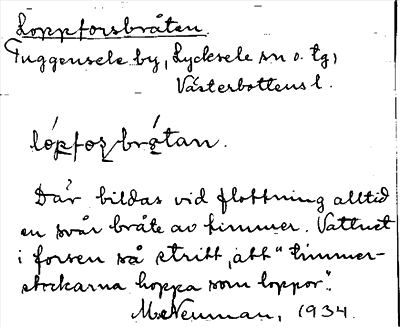 Loppforsbråten
Tuggensele by, Lycksele sn o. tg,
Västerbottens l.
lópfoʂ brǻtan.
Där bildas vid flottning alltid
en svår bråte av timmer. Vattnet
i forsen så stritt, att "timmer-
stockarna hoppa som loppor".
M. Neuman, 1934.